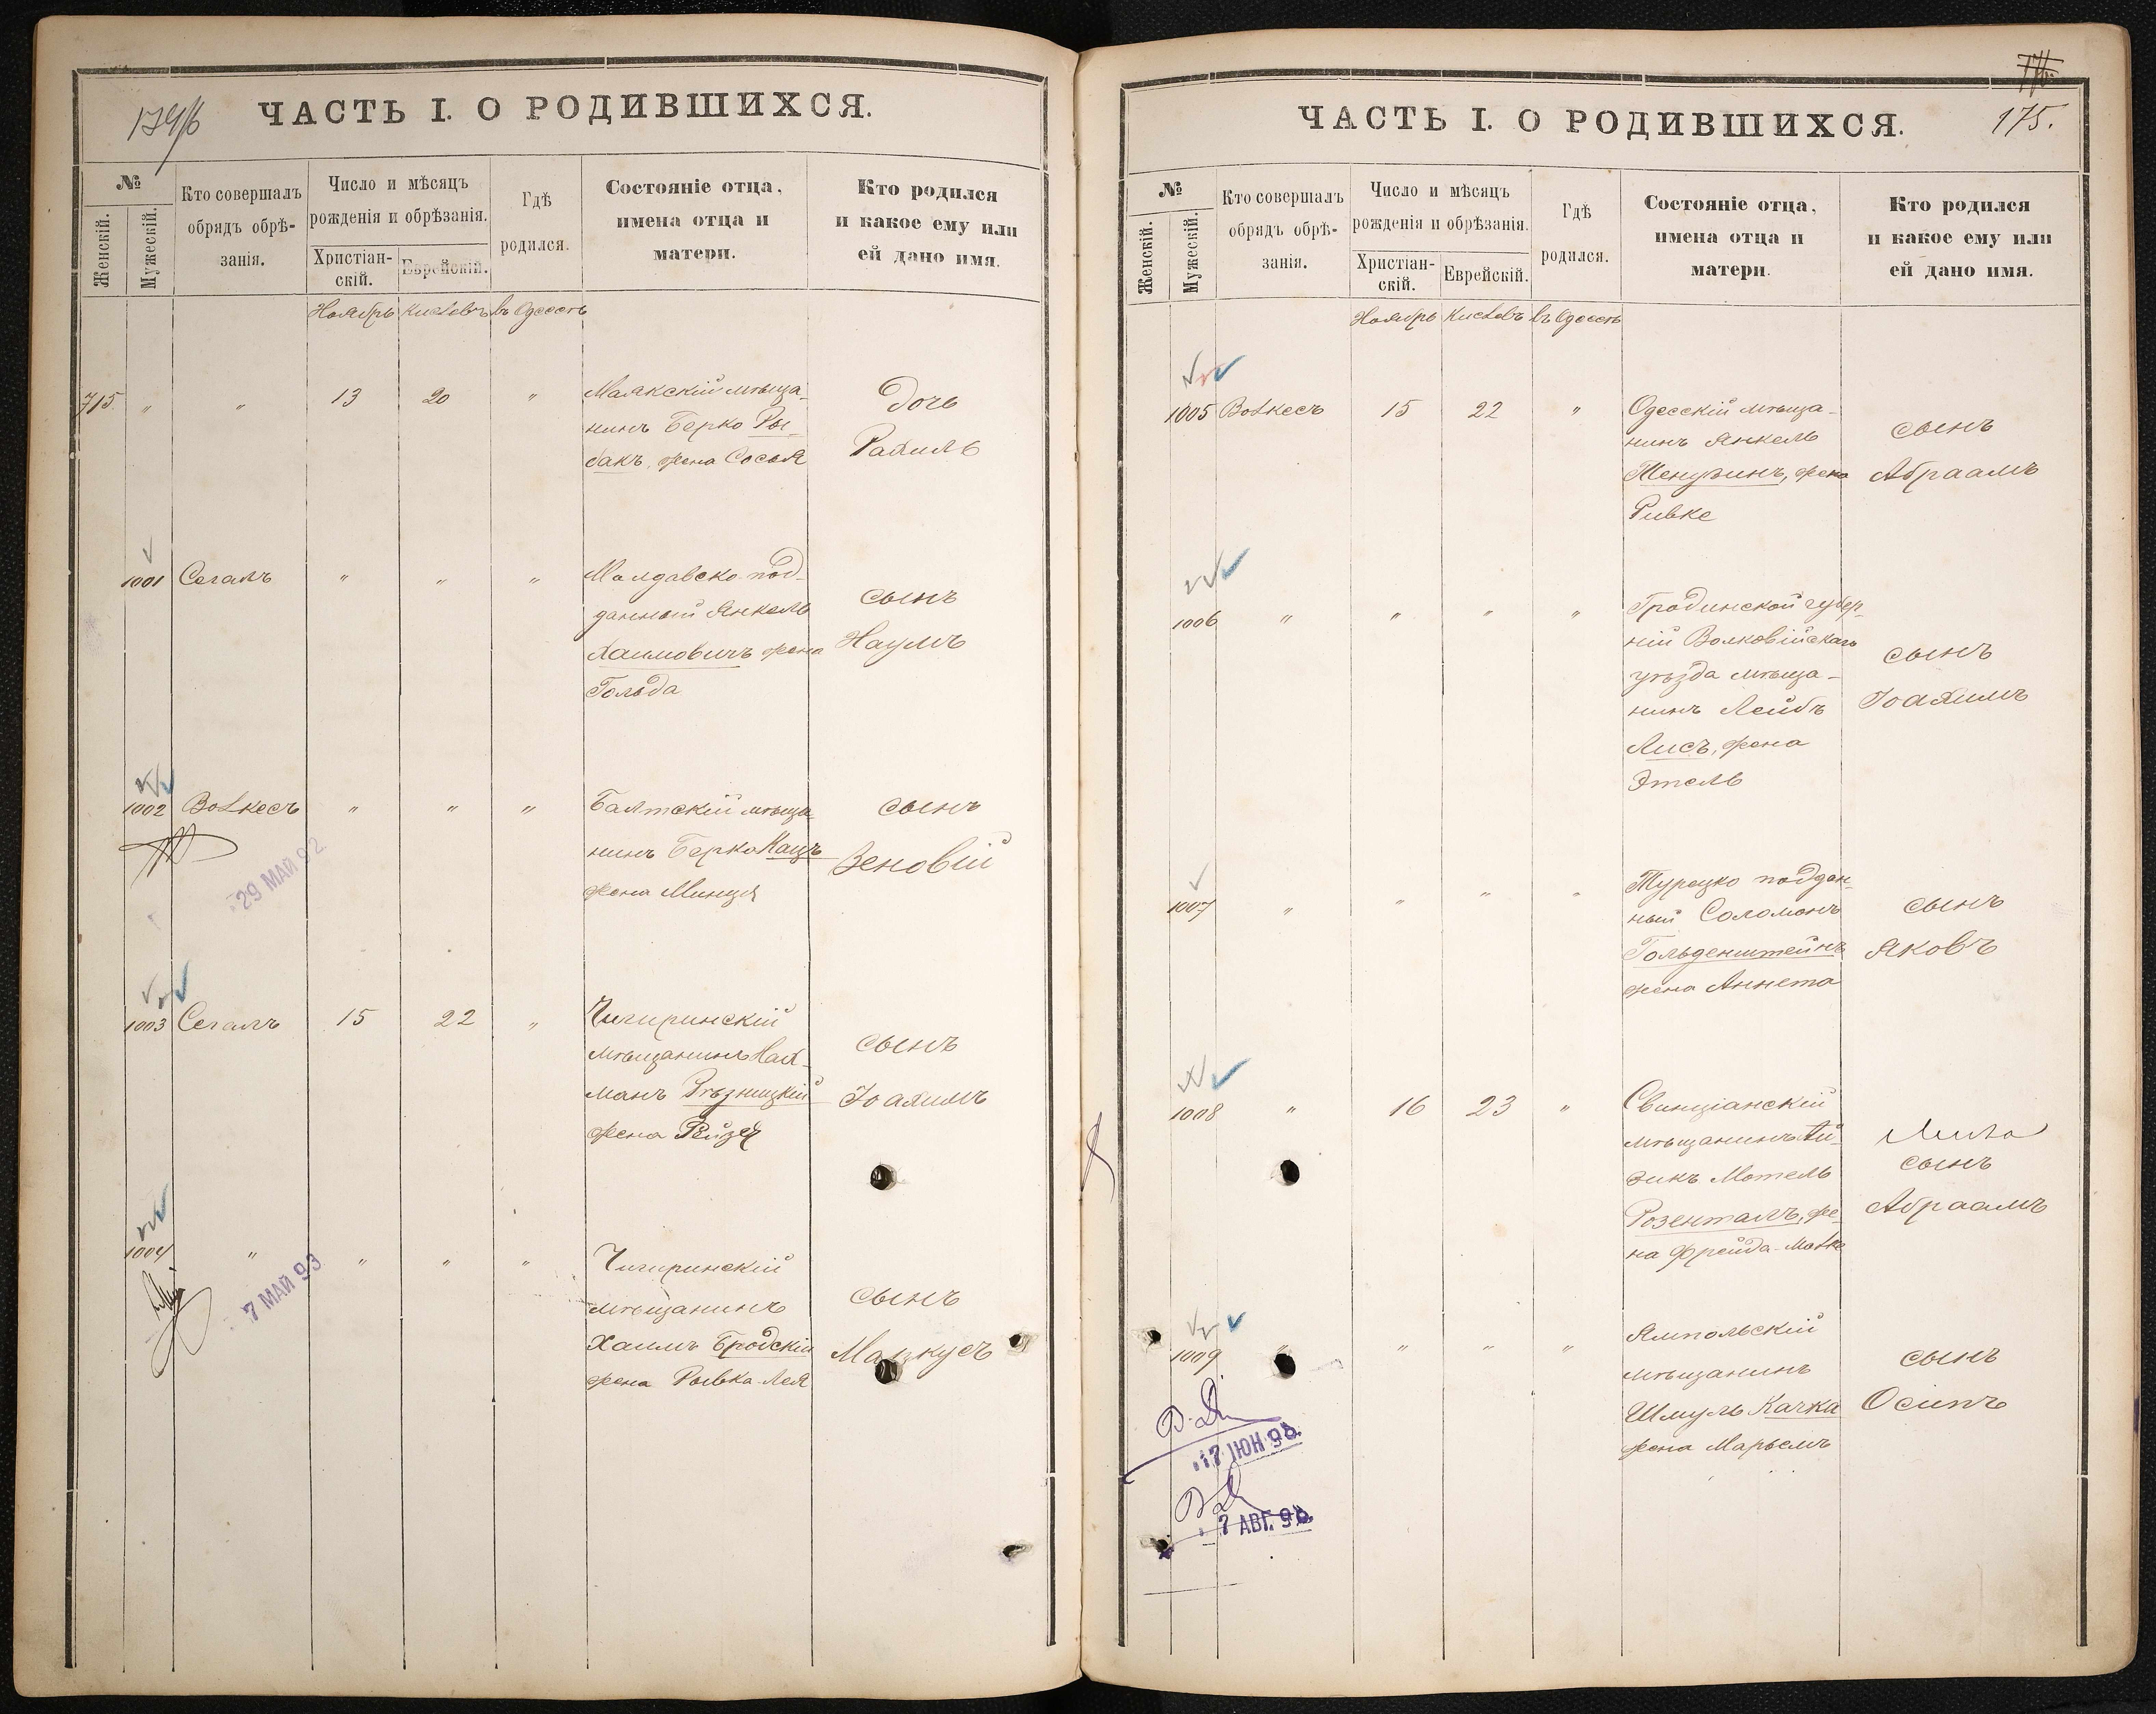 174/б
ЧАСТЬ I. О РОДИВШИХСЯ.
№
Женскій.
Мужескій.
Кто совершалъ
обрядъ обрѣ-
занія.
Число и мѣсяцъ
рожденія и обрѣзанія.
Христіан-
скій.
Еврейскій.
Гдѣ
родился.
Состояніе отца,
имена отца и
матери.
Кто родился
и какое ему или
ей дано имя.
Ноябрь Кислевъ въ Одессѣ
715 " " 13 20 "
Маякскій мѣща-
нинъ Берко Ры-
бакъ, жена Сося
Дочь
Рахиль
1001 Сегалъ " " "
Молдавско-под-
данный Янкель
Хаимовичъ жена
Гольда
сынъ
Наумъ
1002 Волкесъ " " "
Балтскій мѣща-
нинъ Берко Кацъ
жена Минця
сынъ
Зеновій
29 МАЙ 92
1003 Сегалъ 15 22 "
Чигиринскій
мѣщанинъ Нах-
манъ Рѣзницкій
жена Рейзя
сынъ
Іоахимъ
1004 " " " "
Чигиринскій
мѣщанинъ
Хаимъ Бродскій
жена Рывка-Лея
сынъ
7 МАЙ 93
175.
ЧАСТЬ I. О РОДИВШИХСЯ.
№
Женскій.
Мужескій.
Кто совершалъ
обрядъ обрѣ-
занія.
Число и мѣсяцъ
рожденія и обрѣзанія.
Христіан-
скій.
Еврейскій.
Гдѣ
родился.
Состояніе отца,
имена отца и
матери.
Кто родился
и какое ему или
ей дано имя.
Ноябрь Кислевъ въ Одессѣ
1005 Волкесъ 15 22 "
Одесскій мѣща-
нинъ Янкель
жена
Ривке
сынъ
Абраамъ
1006 " " " "
Гродненской губер-
ніи Волковійскаго
уѣзда мѣща-
нинъ Лейбъ
Лисъ, жена
Этель
сынъ
Іоахимъ
1007 " " " "
Турецко поддан-
ный Соломонъ
Гольденштейнъ
жена Аннета
сынъ
Яковъ
1008 " 16 23 "
Свинціанскій
мѣщанинъ Ай-
зикъ Мотель
Розенталъ, же-
на Фрейда-Малке
сынъ
Абраамъ
1009 " " " "
Ямпольскій
мѣщанинъ
Шмуль Качка
жена Марьемъ
сынъ
Осипъ
17 ЮН 98.
7 АВГ. 98.